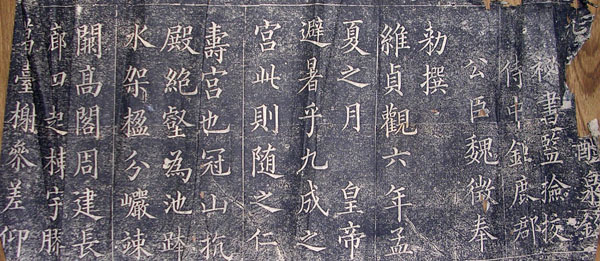 醴泉銘
秘書監撿挍
侍中鉅鹿郡
公臣魏徵奉
勑撰
維貞觀六年孟
夏之月 皇帝
避暑乎九成之
宮此則隨之仁
壽宮也冠山抗
殿絶壑為池跨
水架楹分巖竦
闕高閣周建長
廊四起棟宇膠
葛臺榭參差仰